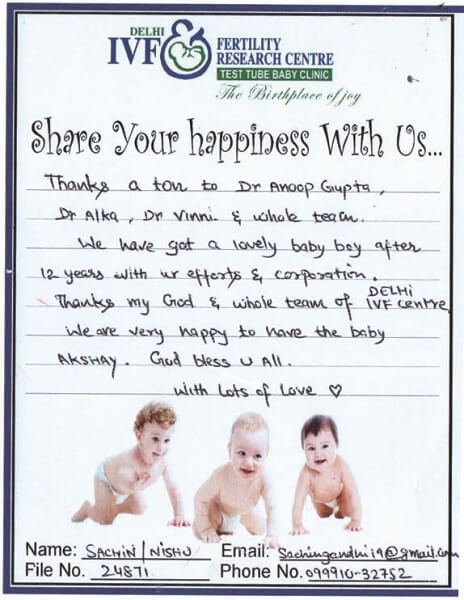 DELHI
IVF & FERTILITY
RESEARCH CENTRE
TEST TUBE BABY CLINIC
The Birthplace of joy
Share Your happiness With Us...
Thanks a ton to Dr Anoop Gupta,
Dr Alka, Dr Vinni & whole team.
We have got a lovely baby boy after
12 years with ur efforts & corporation.
Thanks my God & whole team of DELHI IVF Centre
We are very happy to have the baby
AKSHAY. God bless u All.
With Lots of Love ♡
Name: SACHIN/NISHU Email: Sachingandhi19@gmail.com
File No. 24871 Phone No. 099910-32752